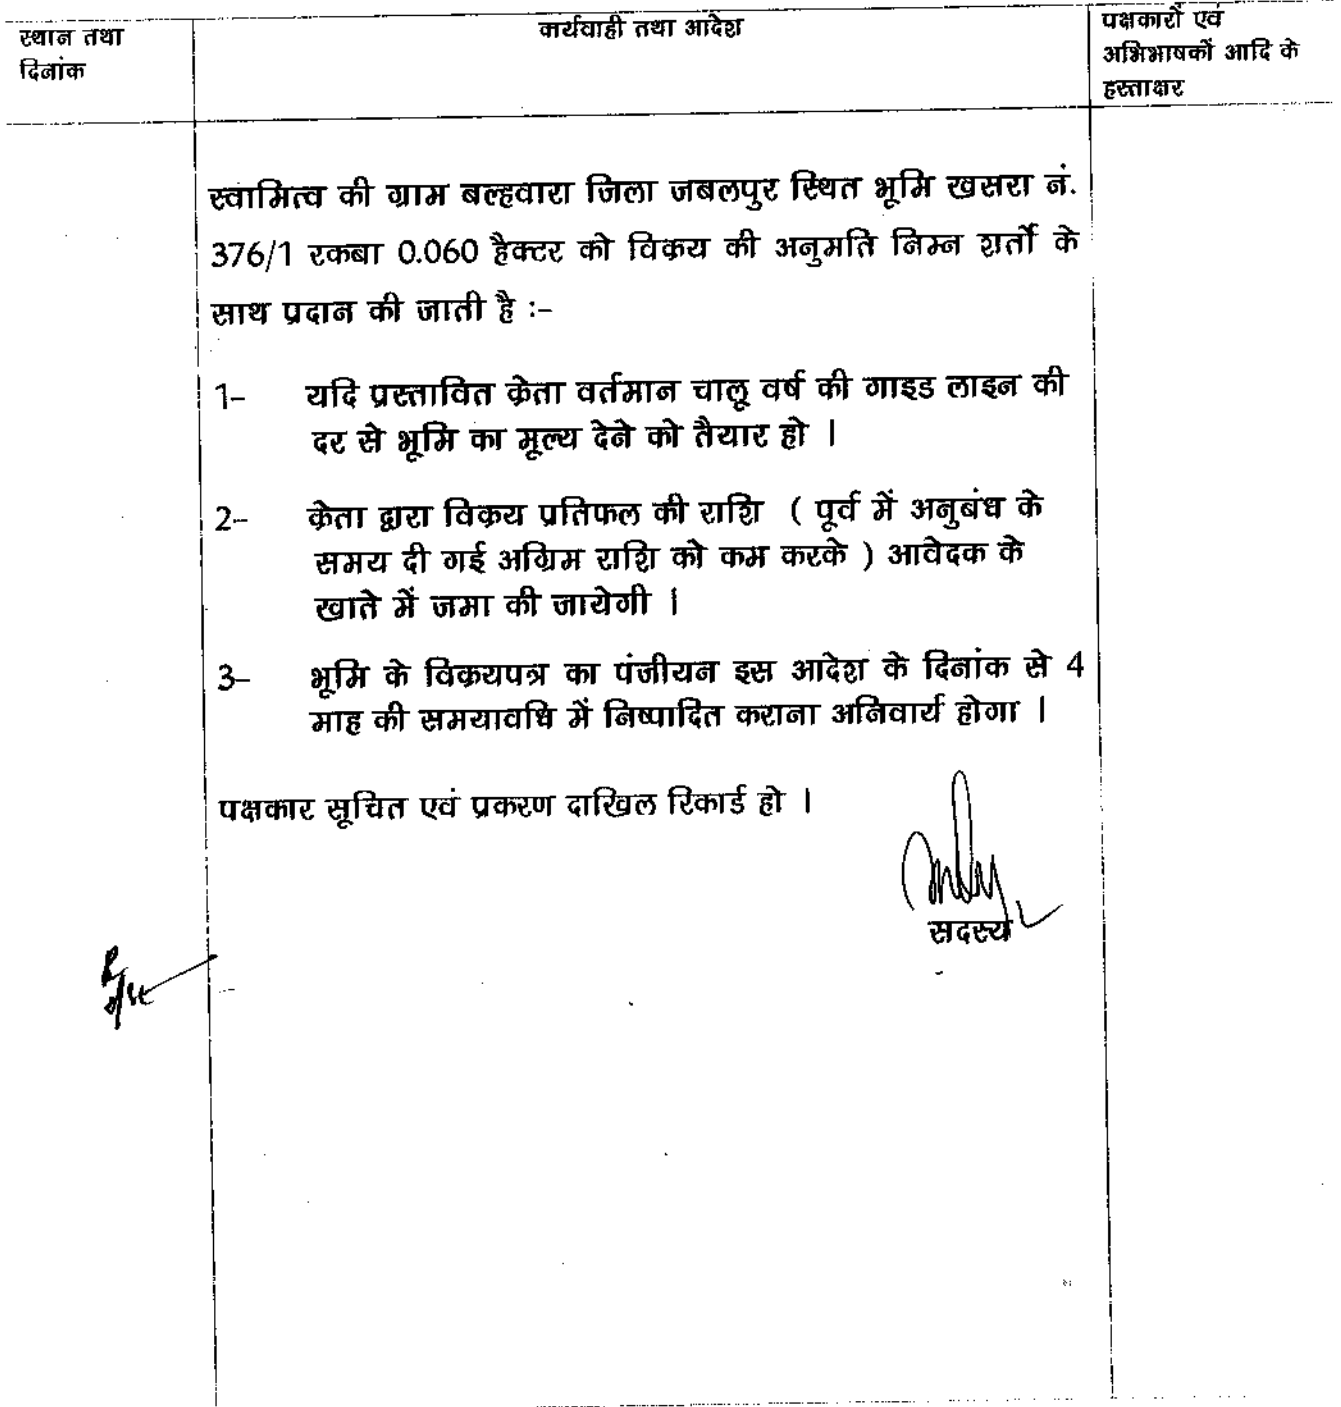 स्थान तथा
दिनांक
कार्यवाही तथा आदेश
पक्षकारों एवं
अभिभाषकों आदि के
हस्ताक्षर
स्वामित्व की ग्राम बल्हवारा जिला जबलपुर स्थित भूमि खसरा नं.
376/1 रकबा 0.060 हैक्टर को विक्रय की अनुमति निम्न शर्तो के
साथ प्रदान की जाती है :-
1- यदि प्रस्तावित क्रेता वर्तमान चालू वर्ष की गाइड लाइन की
दर से भूमि का मूल्य देने को तैयार हो ।
2- क्रेता द्वारा विक्रय प्रतिफल की राशि ( पूर्व में अनुबंध के
समय दी गई अग्रिम राशि को कम करके ) आवेदक के
खाते में जमा की जायेगी ।
3- भूमि के विक्रयपत्र का पंजीयन इस आदेश के दिनांक से 4
माह की समयावधि में निष्पादित कराना अनिवार्य होगा ।
पक्षकार सूचित एवं प्रकरण दाखिल रिकार्ड हो ।
सदस्य